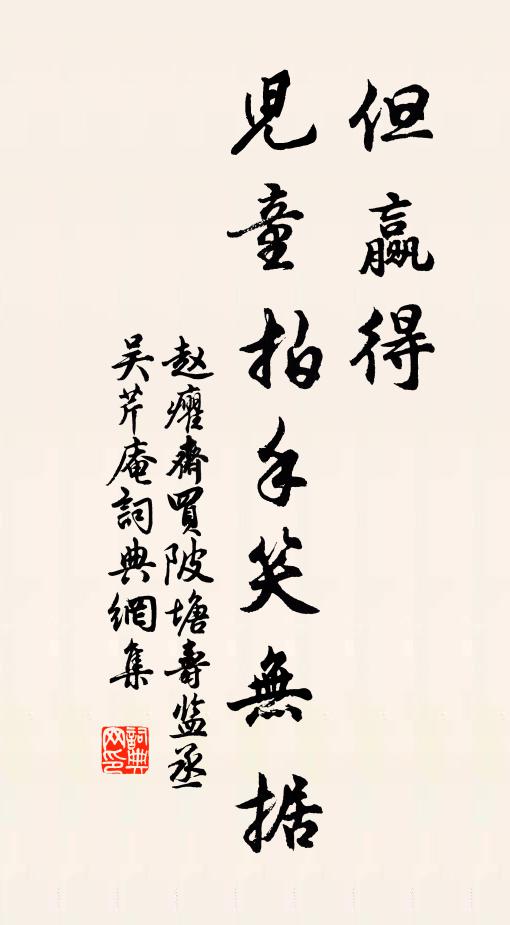 但贏得
兒童拍手笑無据
赵癯齋買陂塘壽监丞
吴芹庵詞典網集
詞典网印